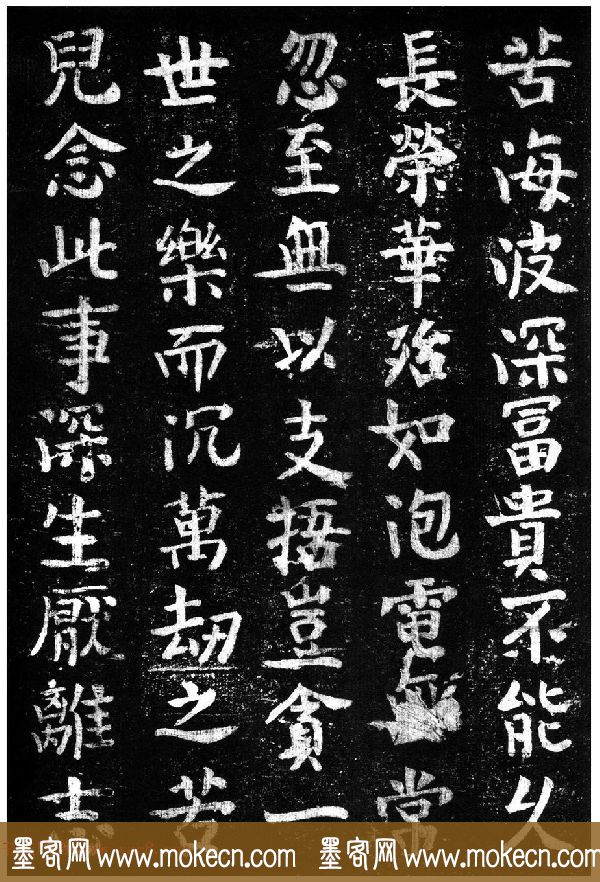 苦海波深冨貴不能久
長榮華殆如泡電無常
忽至無以支捂豈貪一
世之樂而沉萬劫之苦
兒念此事深生厭離
墨客网 www.mokecn.com 墨客网 www.mokecn.com